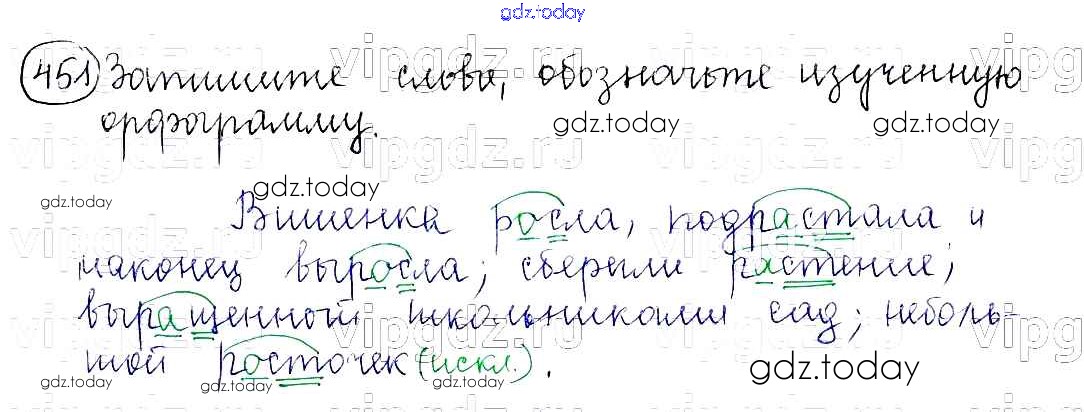 gdz.today
451 Запишите слова, обозначьте изученную
орфограмму.
gdz.today gdz.today
gdz.today
Вишенка росла, подрастала и
наконец выросла; сберегли растение;
выращенный школьниками сад; неболь-
шой росточек (искл.).
gdz.today gdz.today gdz.today